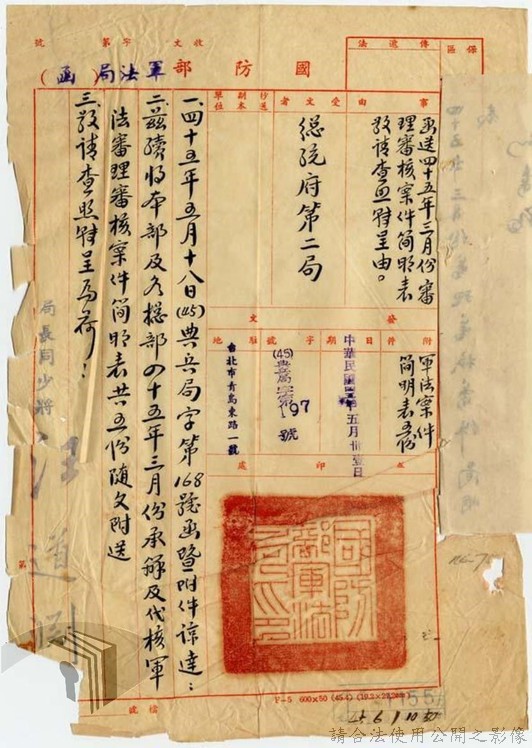 收文　字第　號
國防部軍法局（函）
保區
傳遞法
事由
函送四十五年三月份審
理審核案件簡明表
敬請查照辦呈由。
受文者
總統府第二局
抄送副本單位
發文
附件
軍法案件
簡明表五份
日期
中華民國四十五年五月卅壹日
字號
(45)典兵局字第197號
駐地
台北市青島東路一號
蓋印處
國防部軍法局印
一、四十五年五月十八日(45)典兵局字第168號函暨附件諒達：
二、茲續將本部及各總部四十五年三月份承辦及代核軍
法審理審核案件簡明表共五份隨文附送
三、敬請查照辦呈為荷！
局長周少將汪道淵
第
檔處
F-5 600×50 (45.4) (19.2×28.2㎝)
45 6 1 10
請合法使用公開之影像